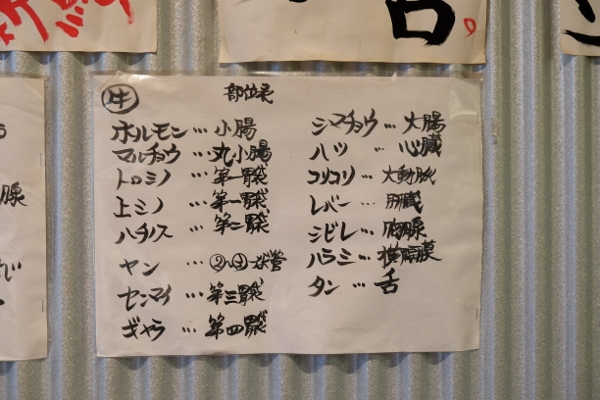 舌
牛
部位表
ホルモン…小腸
マルチョウ…丸小腸
トロミノ…第一胃袋
上ミノ…第一胃袋
ハチノス…第二胃袋
ヤン…②〜③
センマイ…第三胃袋
ギャラ…第四胃袋
シマチョウ…大腸
ハツ…心臓
コリコリ…大動脈
レバー…肝臓
シビレ…胸腺
ハラミ…横隔膜
タン…舌
腺